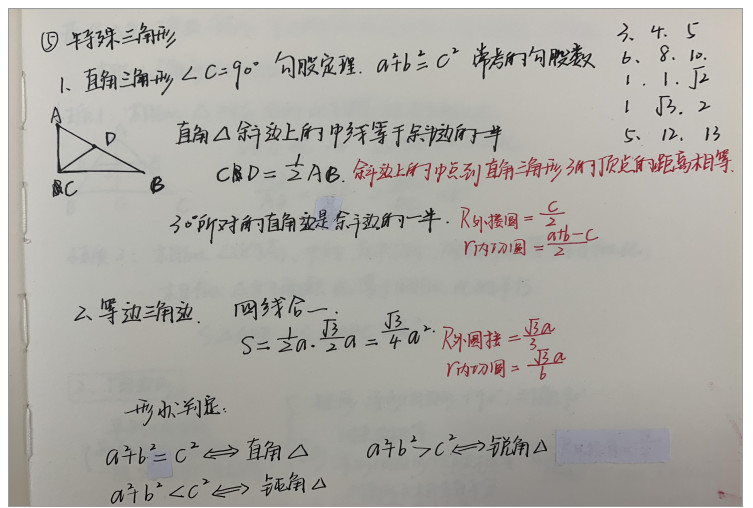 ⑤ 特殊三角形
1、直角三角形 ∠C=90° 勾股定理. a²+b²=c² 常考的勾股数
3、4、5
6、8、10.
1、1、√2
1 √3、2
5、12、13
A
D
C
B
直角△斜边上的中线等于斜边的一半
CD=½AB. 斜边上的中点到直角三角形3的顶点的距离相等.
30°所对的直角边是斜边的一半. R外接圆=c/2
r内切圆=(a+b-c)/2
2、等边三角边. 四线合一.
S=½a·√3/2 a=√3/4 a². R外圆接=√3a/3
r内切圆=√3a/6
形状判定:
a²+b²=c²⟺直角△ a²+b²>c²⟺锐角△
a²+b²<c²⟺钝角△